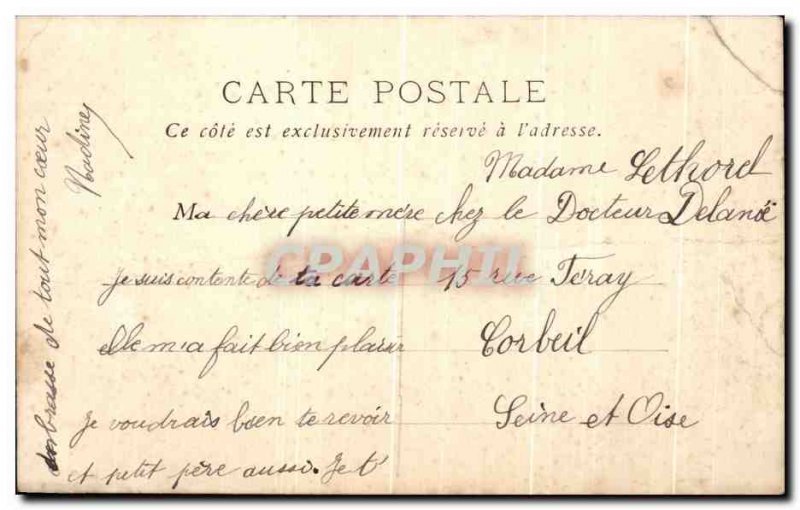 CARTE POSTALE
Ce côté est exclusivement réservé à l'adresse.
Madame Lethorel
chez le Docteur Delanoë
15 rue Féray
Corbeil
Seine et Oise
Ma chère petite mère
Je suis contente de ta carte
elle m'a fait bien plaisir
Je voudrais bien te revoir
et petit père aussi. Je t'
embrasse de tout mon cœur
Nadine
CPAPHIL